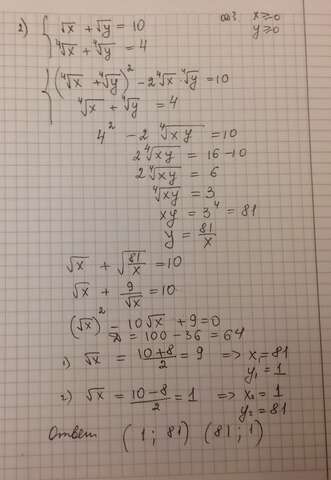 2) { √x + √y = 10 ОДЗ x ≥ 0
⁴√x + ⁴√y = 4 y ≥ 0
{ (⁴√x + ⁴√y)² - 2⁴√x · ⁴√y = 10
⁴√x + ⁴√y = 4
4² - 2 ⁴√xy = 10
2 ⁴√xy = 16 - 10
2 ⁴√xy = 6
⁴√xy = 3
xy = 3⁴ = 81
y = 81/x
√x + √(81/x) = 10
√x + 9/√x = 10
(√x)² - 10√x + 9 = 0
D = 100 - 36 = 64
1) √x = (10+8)/2 = 9 => x₁ = 81
y₁ = 1
2) √x = (10-8)/2 = 1 => x₂ = 1
y₂ = 81
Ответ (1 ; 81) (81 ; 1)